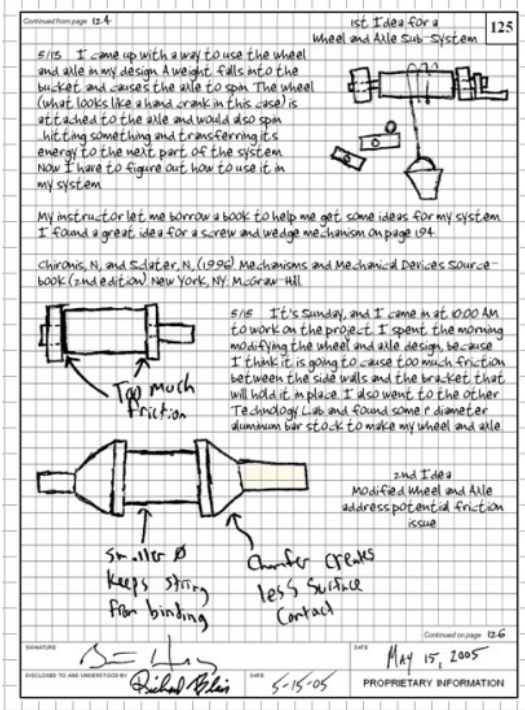 Continued from page 124
1st Idea for a
Wheel and Axle Sub-System
125
5/13 I came up with a way to use the wheel
and axle in my design. A weight falls into the
bucket and causes the axle to spin. The wheel
(what looks like a hand crank in this case) is
attached to the axle and would also spin
hitting something and transferring its
energy to the next part of the system.
Now I have to figure out how to use it in
my system.
My instructor let me borrow a book to help me get some ideas for my system.
I found a great idea for a screw and wedge mechanism on page 194.
Chironis, N, and Sclater, N, (1996) Mechanisms and Mechanical Devices Source-
book (2nd edition) New York, NY: McGraw-Hill
5/15 It's Sunday, and I came in at 10:00 AM
to work on the project. I spent the morning
modifying the wheel and axle design, because
I think it is going to cause too much friction
between the side walls and the bracket that
will hold it in place. I also went to the other
Technology Lab and found some 1" diameter
aluminum bar stock to make my wheel and axle.
Too Much
Friction
2nd Idea
Modified Wheel and Axle
address potential friction
issue
Smaller Ø
Keeps String
From binding
Chamfer Creates
less Surface
Contact
Continued on page 126
SIGNATURE
DATE
May 15, 2005
DISCLOSED TO AND UNDERSTOOD BY
DATE
5-15-05
PROPRIETARY INFORMATION